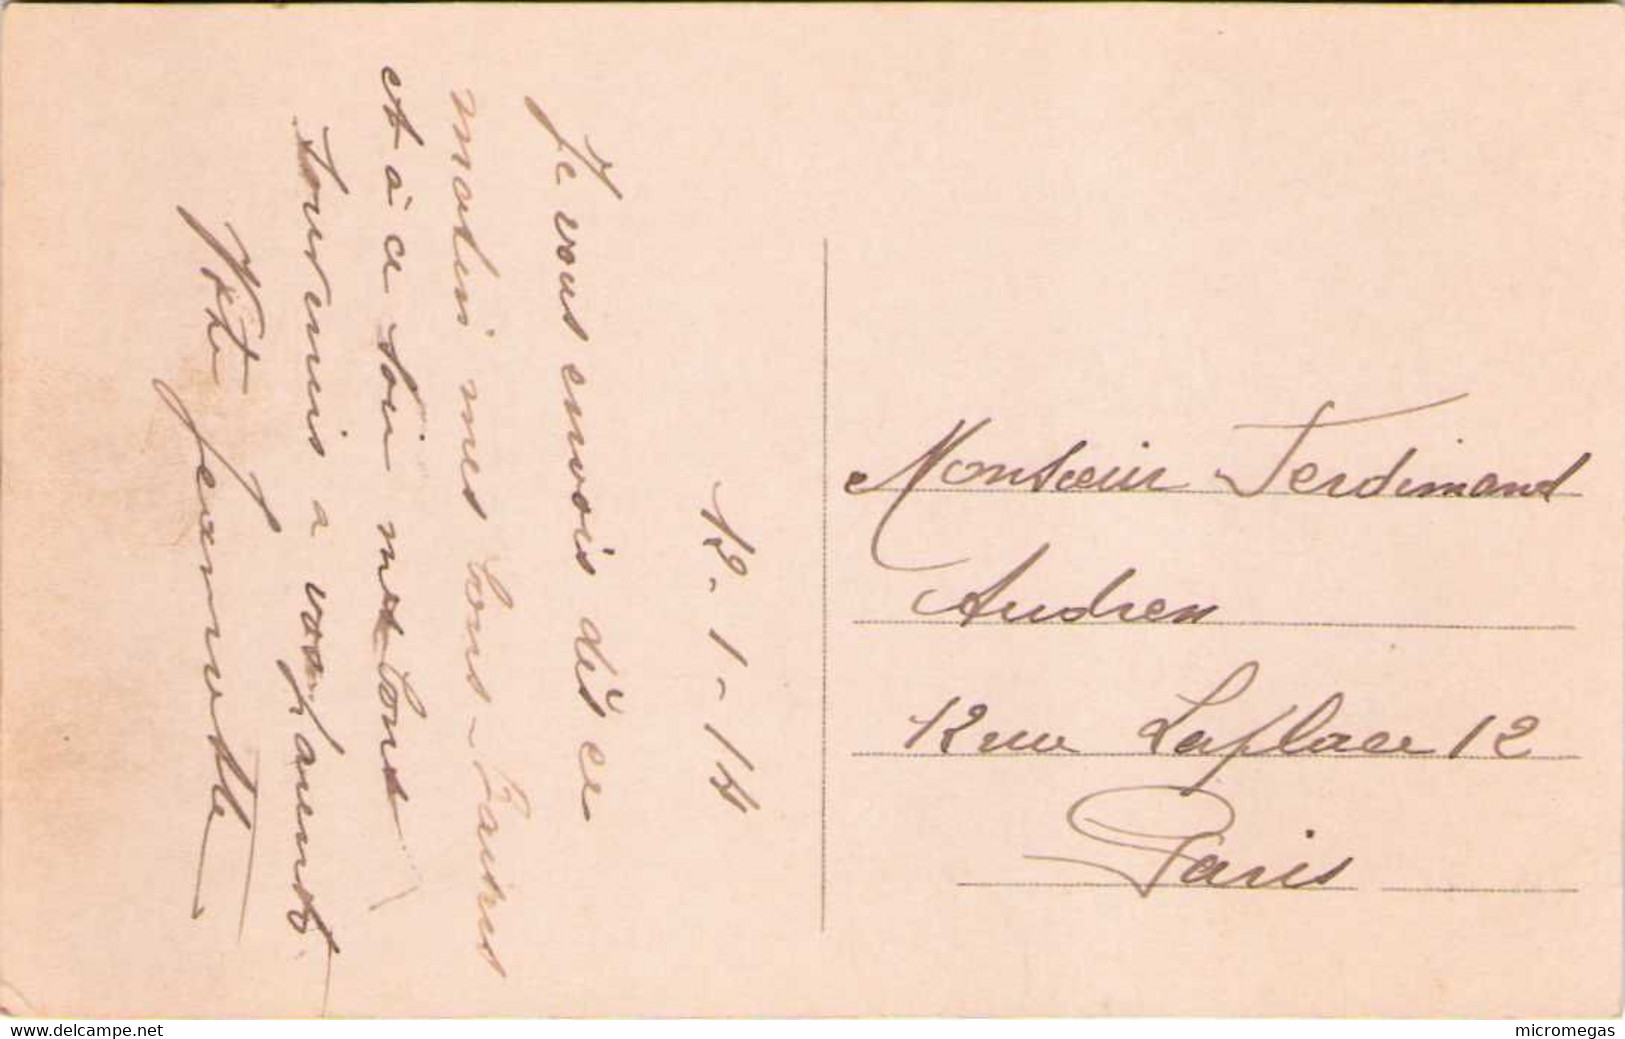 12-1-14
Je vous envois dès ce
matin mes bons-baisers
et à ce soir mes bons
souvenirs a vos parents.
Vtre Jeannette
Monsieur Ferdinand
Audren
12 rue Laplace 12
Paris
www.delcampe.net
micromegas